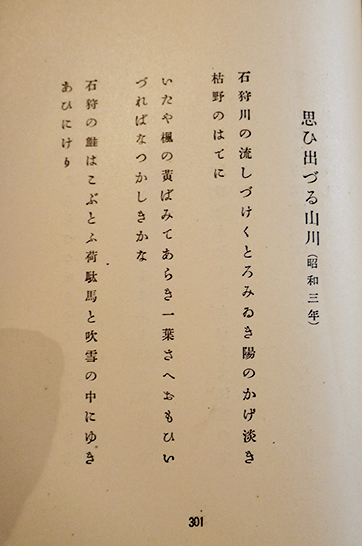 思ひ出づる山川（昭和三年）
石狩川の流しづけくとろみゐき陽のかげ淡き
枯野のはてに
いたや楓の黄ばみてあらき一葉さへおもひい
づればなつかしきかな
石狩の鮭はこぶとふ荷駄馬と吹雪の中にゆき
あひにけり
301